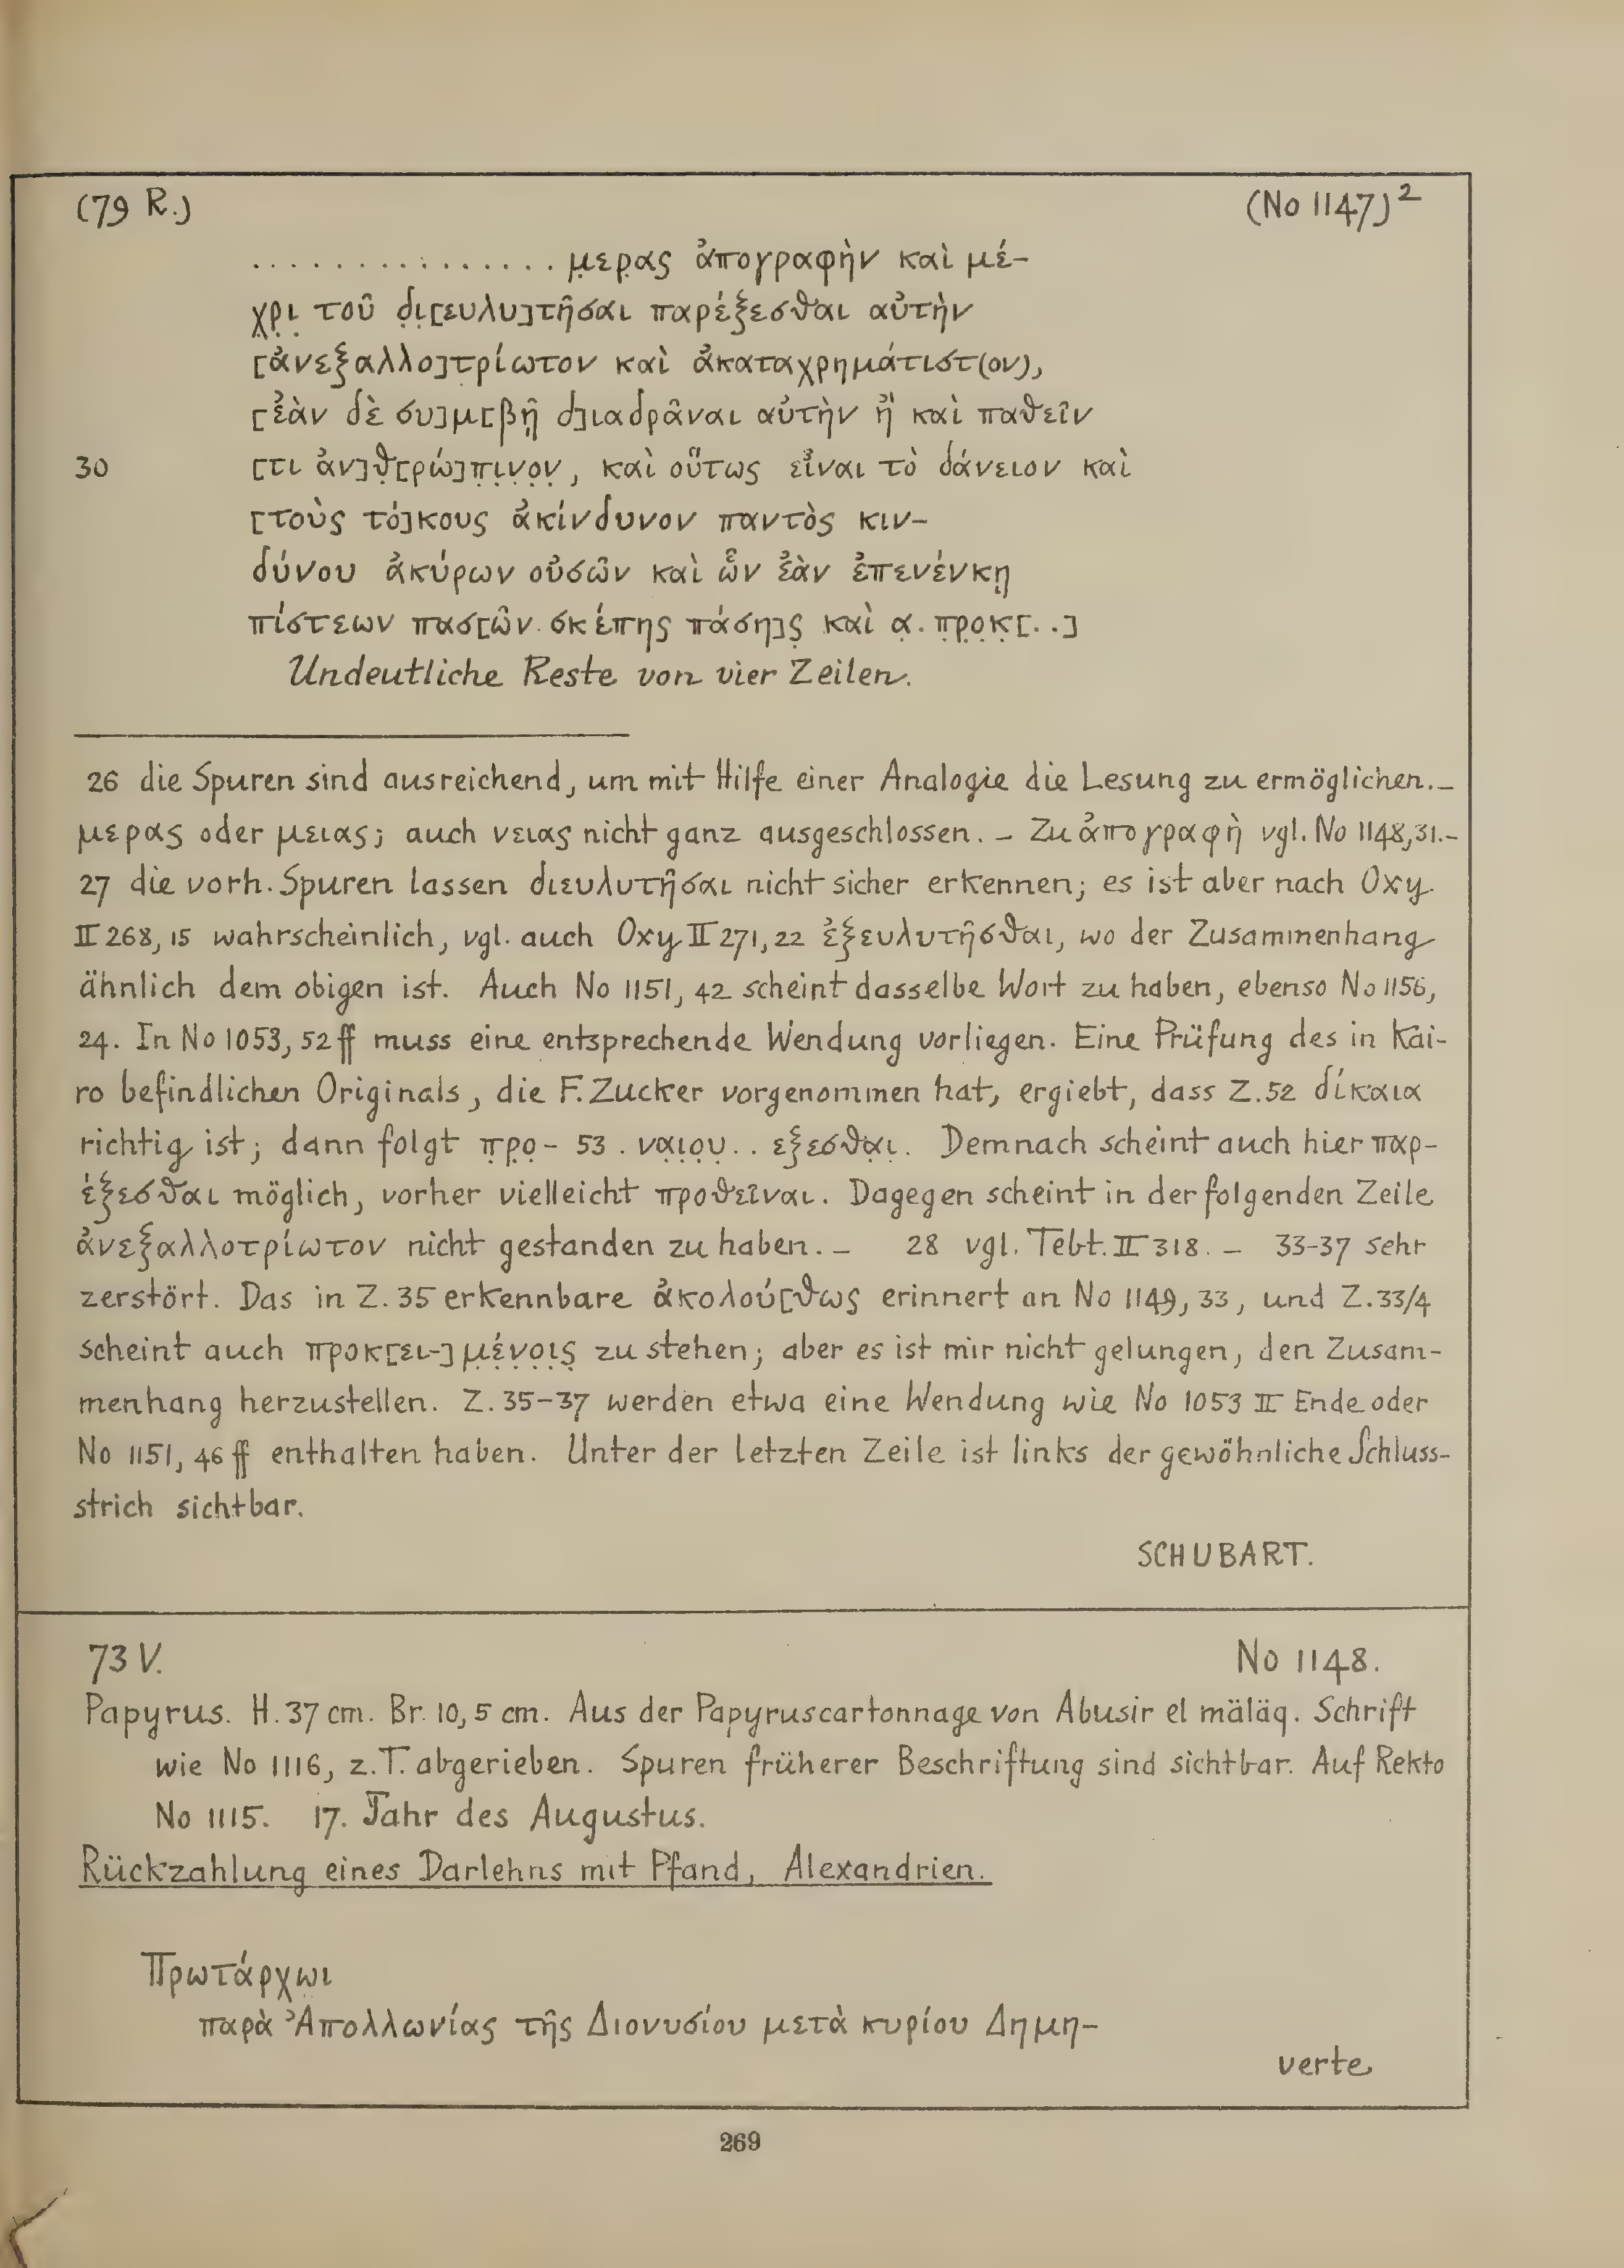 (79 R.) (No 1147)²
............... μ̣ερ̣ας ἀπογραφὴν καὶ μέ-
χ̣ρ̣ι̣ τοῦ δ̣ι̣[ευλυ]τῆσαι παρέξεσθαι αὐτὴν
[ἀνεξαλλο]τ̣ρίωτον καὶ ἀκαταχρημάτιστ(ον),
[ἐὰν δὲ συ]μ[βῇ δ]ιαδρᾶναι αὐτὴν ἢ καὶ παθεῖν
30 [τι ἀν]θ̣[ρώ]π̣ι̣ν̣ο̣ν̣, καὶ οὕτως εἶναι τὸ δάνειον καὶ
[τοὺς τό]κους ἀκίνδυνον παντὸς κιν-
δύνου ἀκύρων οὐσῶν καὶ ὧν ἐὰν ἐπενένκῃ
πίστεων πασ[ῶν σκέπης πάση]ς̣ καὶ α̣. π̣ρ̣ο̣κ̣[..]
Undeutliche Reste von vier Zeilen.
26 die Spuren sind ausreichend, um mit Hilfe einer Analogie die Lesung zu ermöglichen. –
μερας oder μειας; auch νειας nicht ganz ausgeschlossen. – Zu ἀπογραφὴ vgl. No 1148,31. –
27 die vorh. Spuren lassen διευλυτῆσαι nicht sicher erkennen; es ist aber nach Oxy.
II 268, 15 wahrscheinlich, vgl. auch Oxy II 271, 22 ἐξευλυτῆσθαι, wo der Zusammenhang
ähnlich dem obigen ist. Auch No 1151, 42 scheint dasselbe Wort zu haben, ebenso No 1156,
24. In No 1053, 52 ff muss eine entsprechende Wendung vorliegen. Eine Prüfung des in Kai-
ro befindlichen Originals, die F. Zucker vorgenommen hat, ergiebt, dass Z. 52 δίκαια
richtig ist; dann folgt π̣ρ̣ο̣- 53 . να̣ι̣ο̣υ̣ .. εξεσθα̣ι̣. Demnach scheint auch hier παρ-
έξεσθαι möglich, vorher vielleicht προθεῖναι. Dagegen scheint in der folgenden Zeile
ἀνεξαλλοτρίωτον nicht gestanden zu haben. – 28 vgl. Tebt. II 318. – 33-37 sehr
zerstört. Das in Z. 35 erkennbare ἀκολού[θως erinnert an No 1149, 33, und Z. 33/4
scheint auch προκ[ει-]μ̣έ̣ν̣ο̣ι̣ς̣ zu stehen; aber es ist mir nicht gelungen, den Zusam-
menhang herzustellen. Z. 35-37 werden etwa eine Wendung wie No 1053 II Ende oder
No 1151, 46 ff enthalten haben. Unter der letzten Zeile ist links der gewöhnliche Schluss-
strich sichtbar.
SCHUBART.
73 V. No 1148.
Papyrus. H. 37 cm. Br. 10,5 cm. Aus der Papyruscartonnage von Abusir el mäläq. Schrift
wie No 1116, z. T. abgerieben. Spuren früherer Beschriftung sind sichtbar. Auf Rekto
No 1115. 17. Jahr des Augustus.
Rückzahlung eines Darlehns mit Pfand, Alexandrien.
Πρωτάρχωι
παρὰ Ἀπολλωνίας τῆς Διονυσίου μετὰ κυρίου Δημη-
verte
269